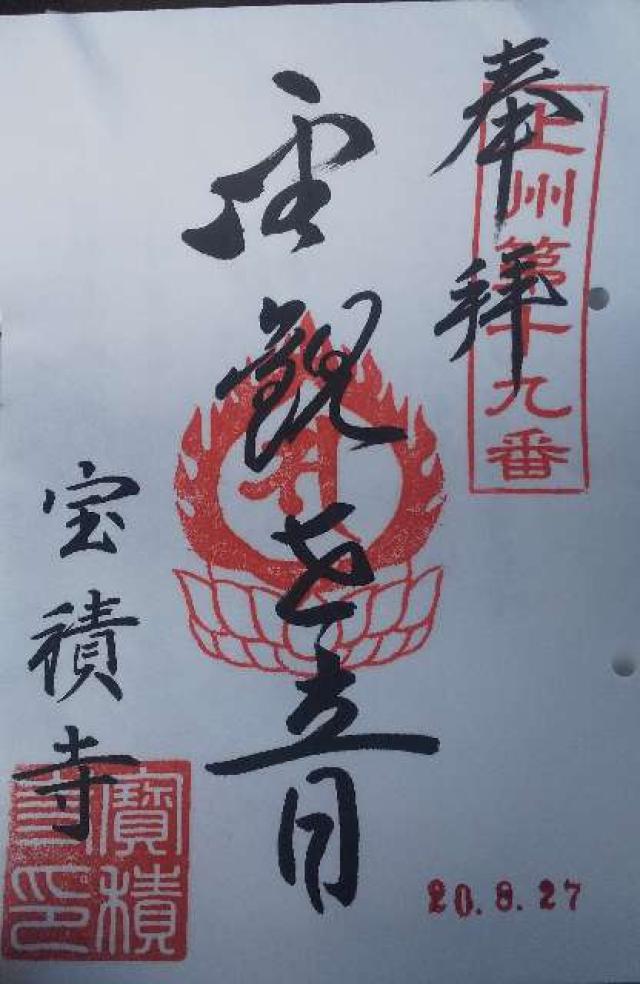 奉拝
上州第十九番
聖観世音
宝積寺
寶積寺印
20.8.27